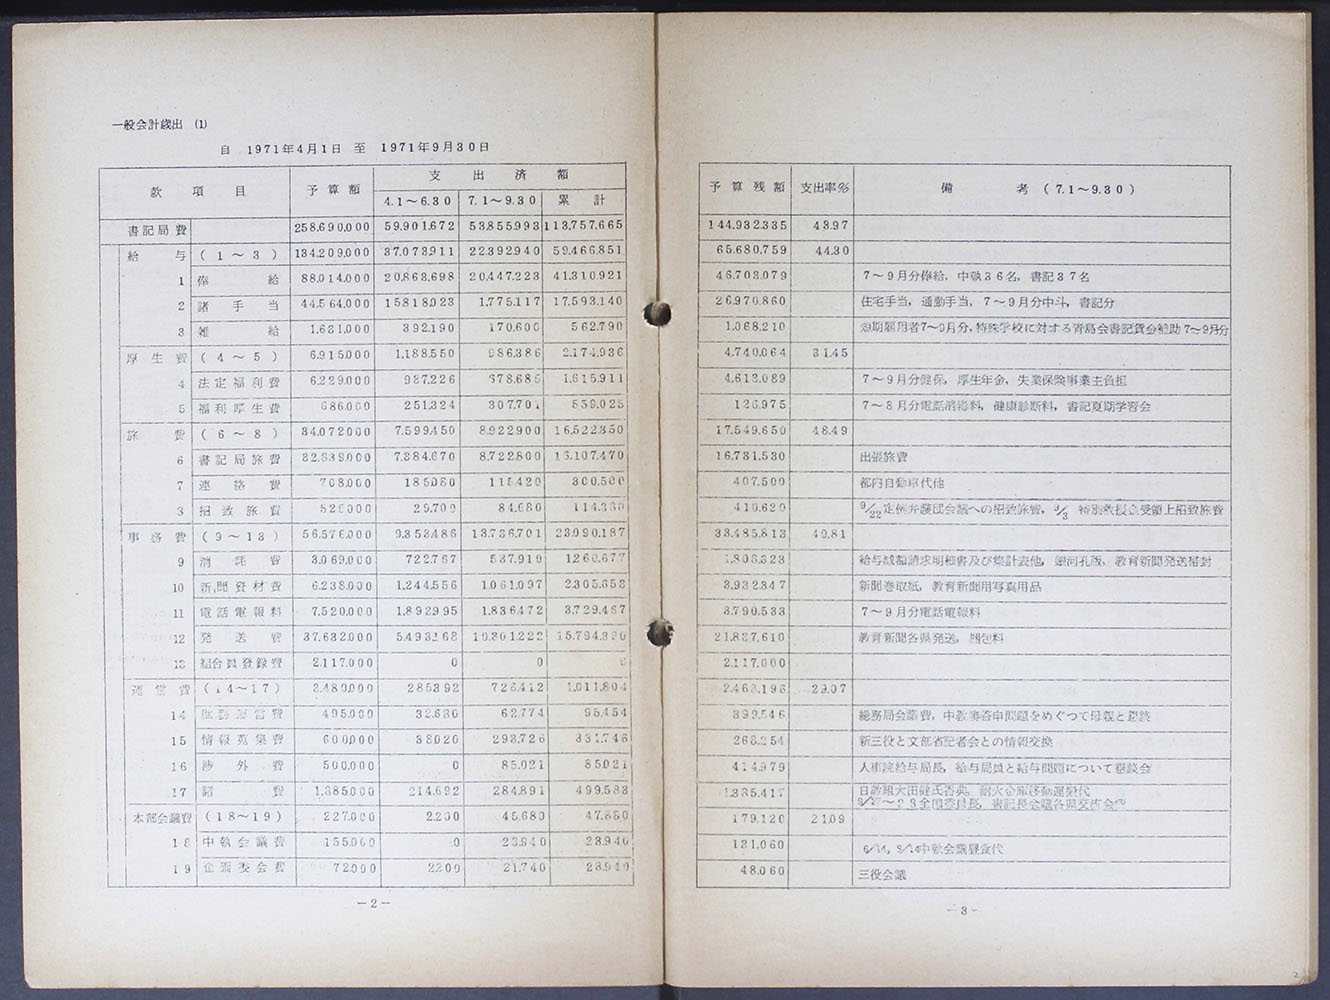 一般会計歳出 (1)
自 1971年4月1日 至 1971年9月30日
款 項 目 予算額 支出済額
4.1～6.30 7.1～9.30 累計
書記局費 258.690.000 59.901.672 53.855.993 113.757.665
給与 (1～3) 134.209.000 37.073.911 22.392.940 59.466.851
1 俸給 88.014.000 20.863.698 20.447.223 41.310.921
2 諸手当 44.564.000 15.818.023 1.775.117 17.593.140
3 雑給 1.631.000 392.190 170.600 562.790
厚生費 (4～5) 6.915.000 1.188.550 986.386 2.174.936
4 法定福利費 6.229.000 937.226 678.685 1.615.911
5 福利厚生費 686.000 251.324 307.701 559.025
旅費 (6～8) 34.072.000 7.599.450 8.922.900 16.522.350
6 書記局旅費 32.839.000 7.384.670 8.722.800 16.107.470
7 連絡費 708.000 185.080 115.420 300.500
招致旅費 29.700 84.680
事務費 (9～13) 56.576.000 9.353.486 13.736.701 23.090.187
9 消耗費 3.069.000 722.767 537.910 1.260.677
10 新聞資材費 6.238.000 1.244.556 1.061.097 2.305.653
11 電話電報料 7.520.000 1.892.995 1.836.472 3.729.467
12 発送費 37.632.000 5.493.168 10.301.222 15.794.390
13 組合員登録費 2.117.000 0 0 0
運営費 (14～17) 3.480.000 285.392 726.412 1.011.804
14 495.000 32.680 62.774 95.454
15 情報蒐集費 600.000 38.020 293.726 331.746
16 渉外費 500.000 0 85.021 85.021
17 諸費 1.885.000 214.692 284.891 499.583
本部会議費 (18～19) 227.000 2.200 45.680 47.880
18 中執会議費 155.000 0 23.940 23.940
19 企画委会費 72.000 2.200 21.740 23.940
－2－
予算残額 支出率% 備考 (7.1～9.30)
144.932.335 43.97
65.680.759 44.30
46.703.079 7～9月分俸給，中執36名，書記37名
26.970.860 住宅手当，通勤手当，7～9月分中斗，書記分
1.068.210 短期雇用者7～9月分，特殊学校に対する青島会書記賃金補助7～9月分
4.740.064 31.45
4.613.089 7～9月分健保，厚生年金，失業保険事業主負担
126.975 7～8月分電話消毒料，健康診断料，書記夏期学習会
17.549.650 48.49
16.731.530 出張旅費
407.500 都内自動車代他
9/22定例弁護団会議への招致旅費， 特別救援金受領上招致旅費
33.485.813 40.81
1.808.323 給与減額請求明細書及び集計表他，銀河孔版，教育新聞発送帯封
3.932.347 新聞巻取紙，教育新聞用写真用品
3.790.533 7～9月分電話電報料
21.837.610 教育新聞各県発送，梱包料
2.117.000
2.468.196 29.07
399.546 総務局会議費，中教審答申問題をめぐつて母親と懇談
268.254 新三役と文部省記者会との情報交換
414.979 人事院給与局長，給与局員と給与問題について懇談会
1.385.417 日教組大田健氏香典，耐火金庫移動運搬代
全国委員長，書記長会議各県交流会
179.120 21.09
131.060 中執会議昼食代
48.060 三役会議
－3－
2